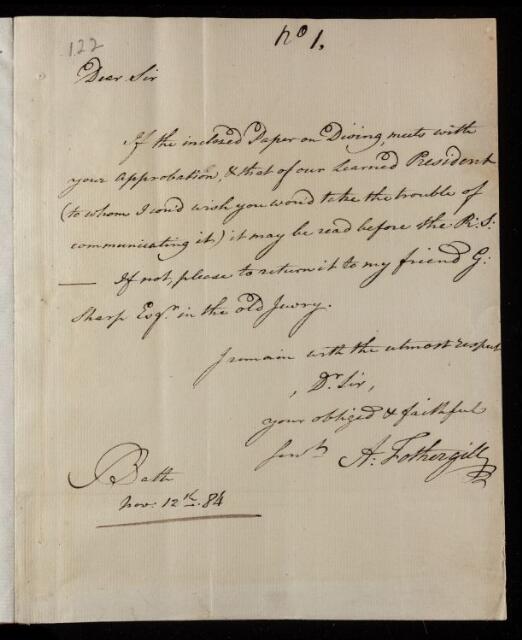 122
No 1.
Dear Sir
If the inclosed Paper on Diving, meets with
your approbation, & that of our Learned President
(to whom I wou'd wish you would take the trouble of
communicating it) it may be read before the R: S:
— If not, please to return it to my friend G:
Sharp Esqr. in the old Jewry.
I remain with the utmost respect
, Dr. Sir,
your obliged & faithful
Servt. A: Fothergill
Bath
Nov. 12th. 84